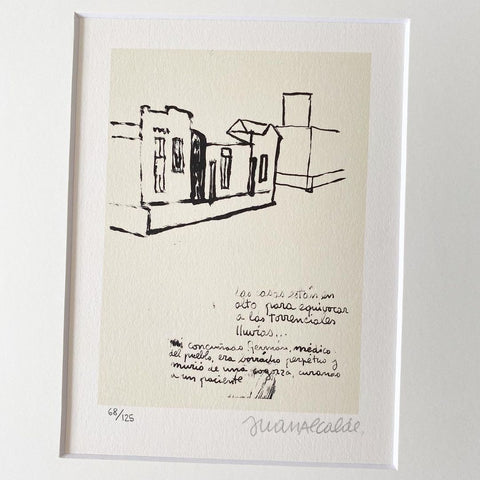 Las casas están en
alto para equivocar
a las torrenciales
lluvias...
Mi concuñado Germán, médico
del pueblo, era borracho perpétuo y
murió de una cogorza, curando
a un paciente
68/125
Juan Alcalde.